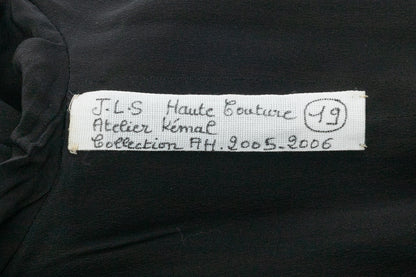 J.L.S Haute Couture 19
Atelier Kémal
Collection AH.2005-2006